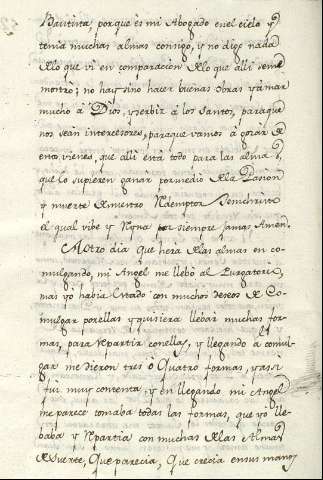 Bautista, porque es mi Abogado en el cielo q̃
tenia muchas almas consigo, y no digo nada
de lo que vi en comparacion de lo que alli se me
mostro; no hay sino hacer buenas obras y amar
mucho á Dios, y serbir á los Santos, para que
nos sean intercesores, para que vamos á gozar de
estos vienes, que alli está todo para las almas,
que lo supieren ganar por medio de la Pasion
y muerte de nuestro Redemptor Jesuchristo
el qual vibe y Reyna por siempre jamas Amen.
Otro dia que hera de las almas en co-
mulgando, mi Angel me llebó al Purgatorio,
mas yo habia estado con muchos deseos de Co-
mulgar por ellas y quisiera llebar muchas for-
mas, para Repartir con ellas, y llegando á comul-
gar me dieron tres ó Quatro formas, y asi
fui muy contenta, y en llegando mi Angel
me parece tomaba todas las formas, que yo lle-
baba y Repartia con muchas de las Almas
de suerte, Que parecia, Que crecia en sus manos